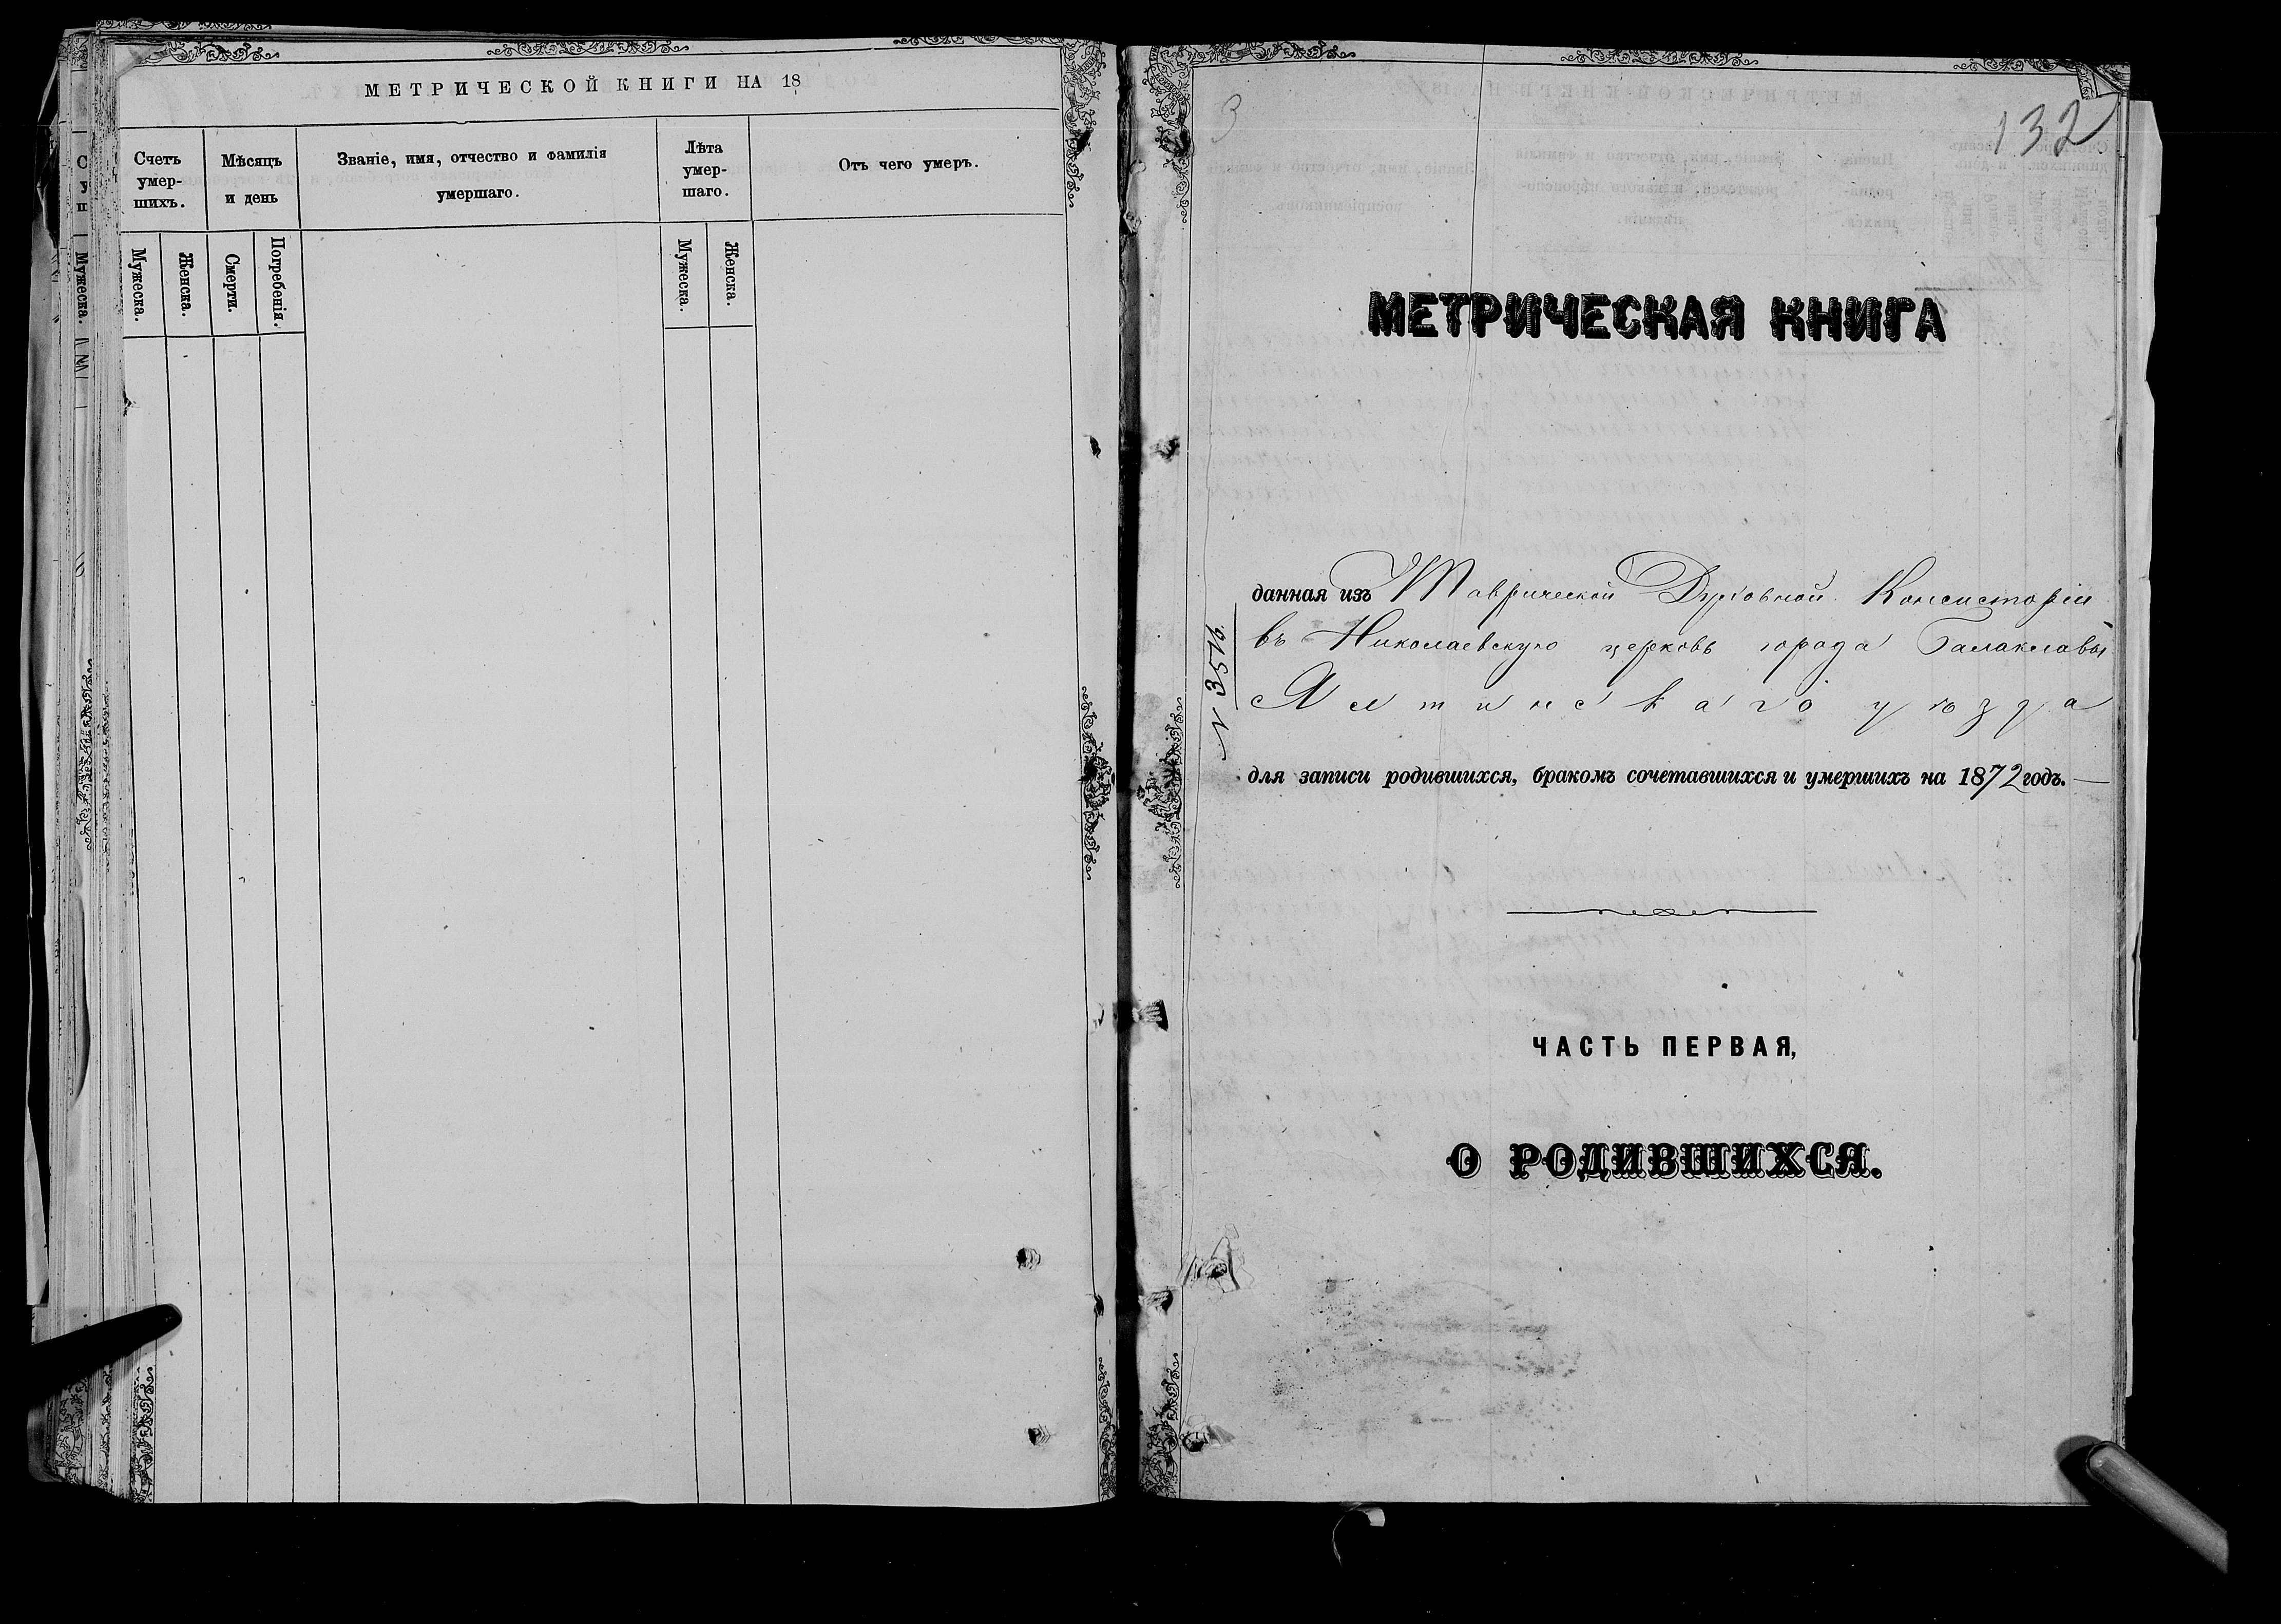 МЕТРИЧЕСКОЙ КНИГИ НА 18
Счетъ умер-шихъ.
Мѣсяцъ и день
Званіе, имя, отчество и фамилія умершаго.
Лѣта умер-шаго.
Отъ чего умеръ.
Мужеска.
Женска.
Смерти.
Погребенія.
Мужеска.
Женска.
132
МЕТРИЧЕСКАЯ КНИГА
данная изъ Таврической Духовной Консисторіи
въ Николаевскую церковь города Балаклавы
Ялтинскаго уѣзда
N 3516.
для записи родившихся, бракомъ сочетавшихся и умершихъ на 1872 годъ.
ЧАСТЬ ПЕРВАЯ,
О РОДИВШИХСЯ.